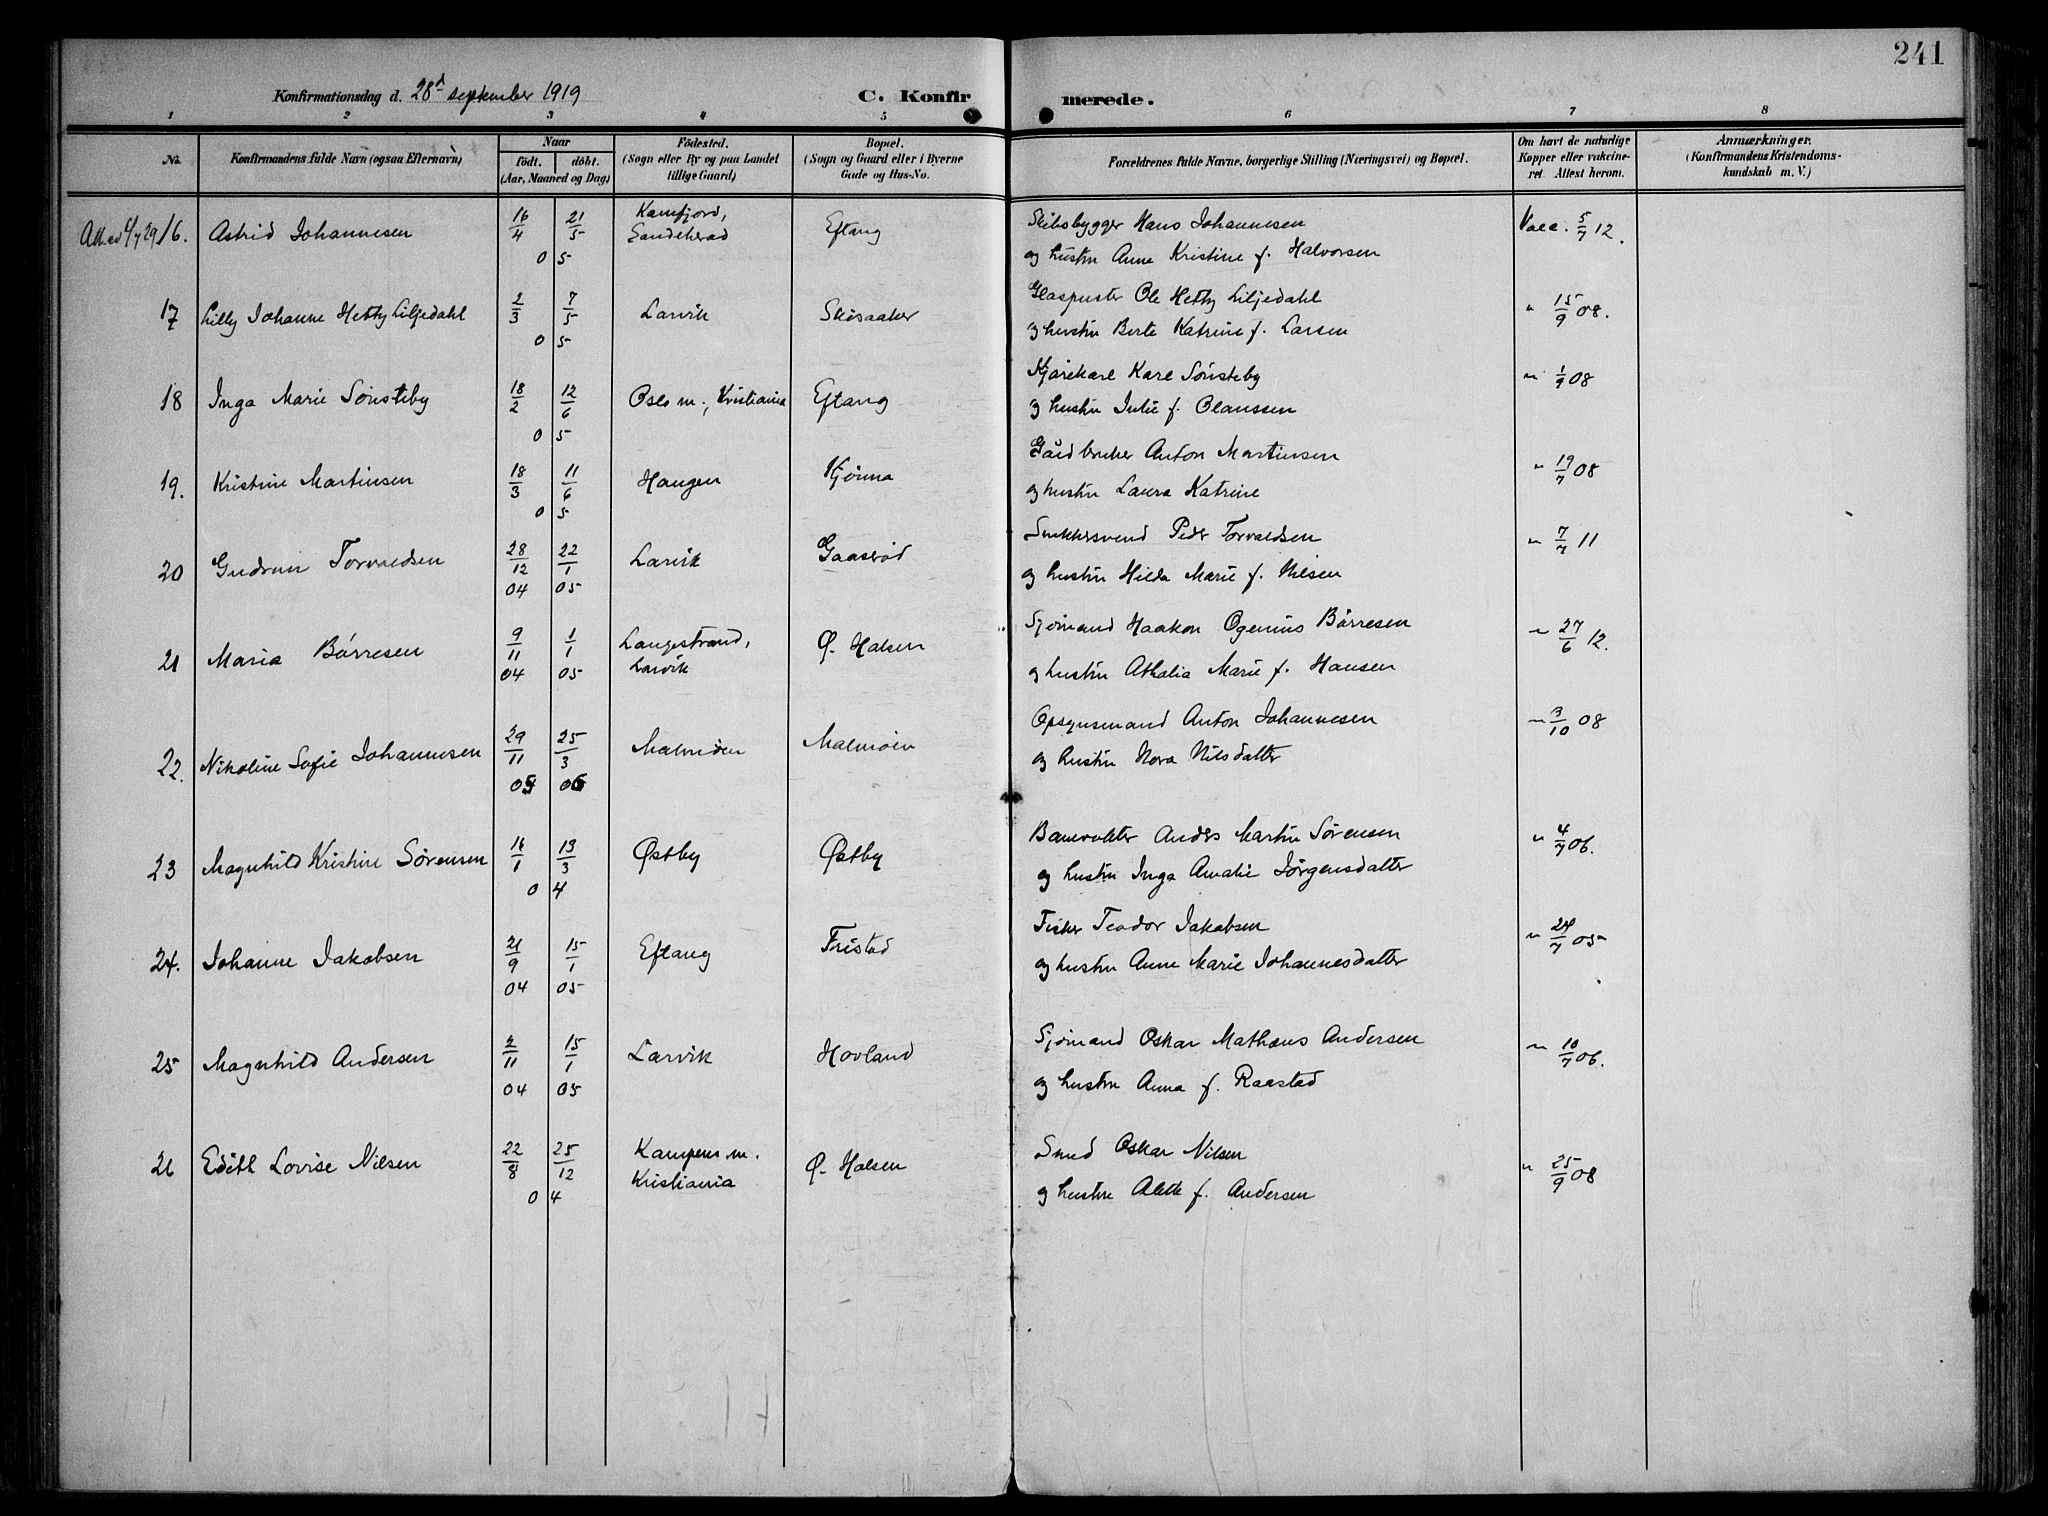 241
Konfirmationsdag d. 28d september 1919
C. Konfirmerede.
1 2 3 4 5 6 7 8
No.
Konfirmandens fulde Navn (ogsaa Efternavn)
Naar
født. døbt.
(Aar, Maaned og Dag)
Fødested.
(Sogn eller By og paa Landet
tillige Gaard)
Bopæl.
(Sogn og Gaard eller i Byerne
Gade og Hus-No.
Forældrenes fulde Navne, borgerlige Stilling (Næringsvei) og Bopæl.
Om havt de naturlige
Kopper eller vakcine-
ret. Attest herom.
Anmærkninger.
(Konfirmandens Kristendoms-
kundskab m. V.)
16. Astrid Johannesen 16/4 21/5 05 Kamfjord, Sandeherad Eftang
Skibsbygger Hans Johannesen
og hustru Anne Kristine f. Halvorsen
Vacc. 5/7 12.
17 Lilly Johanne Hetty Liljedahl 2/3 7/5 05 Larvik Skisaaker
Glaspuster Ole Hetty Liljedahl
og hustru Berte Katrine f. Larsen
" 15/9 08.
18 Inga Marie Sønsteby 18/2 12/6 05 Oslo m., Kristiania Eftang
Kjørekarl Karl Sønsteby
og hustru Julie f. Olaussen
" 1/9 08
19. Kristine Martinsen 18/3 11/6 05 Haugen Kjønna
Gårdbruker Anton Martinsen
og hustru Laura Katrine
" 19/7 08
20 Gudrun Torvaldsen 28/12 04 22/1 05 Larvik Gaaserød
Snekkersvend Peder Torvaldsen
og hustru Hilda Marie f. Nilsen
" 7/7 11
21 Maria Børresen 9/11 04 1/1 05 Langestrand, Larvik Ø. Halsen
Sjømand Haakon Ogenius Børresen
og hustru Athalia Marie f. Hansen
" 27/6 12.
22. Nikoline Sofie Johannesen 29/11 25/3 Malmøen Malmøen
Opsynsmand Anton Johannesen
og hustru Nora Nilsdatter
" 3/10 08
23 Magnhild Kristine Sørensen 16/1 13/3 04 Østby Østby
Banevokter Anders Martin Sørensen
og hustru Inga Amalie Jørgensdatter
" 4/7 06.
24. Johanne Jakobsen 21/9 04 15/1 05 Eftang Fristad
Fisker Teodor Jakobsen
og hustru Anne Marie Johannesdatter
" 24/7 05
25 Magnhild Andersen 2/11 04 15/1 05 Larvik Hovland
Sjømand Oskar Mathæus Andersen
og hustru Anna f. Raastad
" 10/7 06.
26 Edith Lovise Nilsen 22/8 25/12 04 Kampens m. Kristiania Ø. Halsen
Smed Oskar Nilsen
og hustru Alette f. Andersen
" 25/9 08